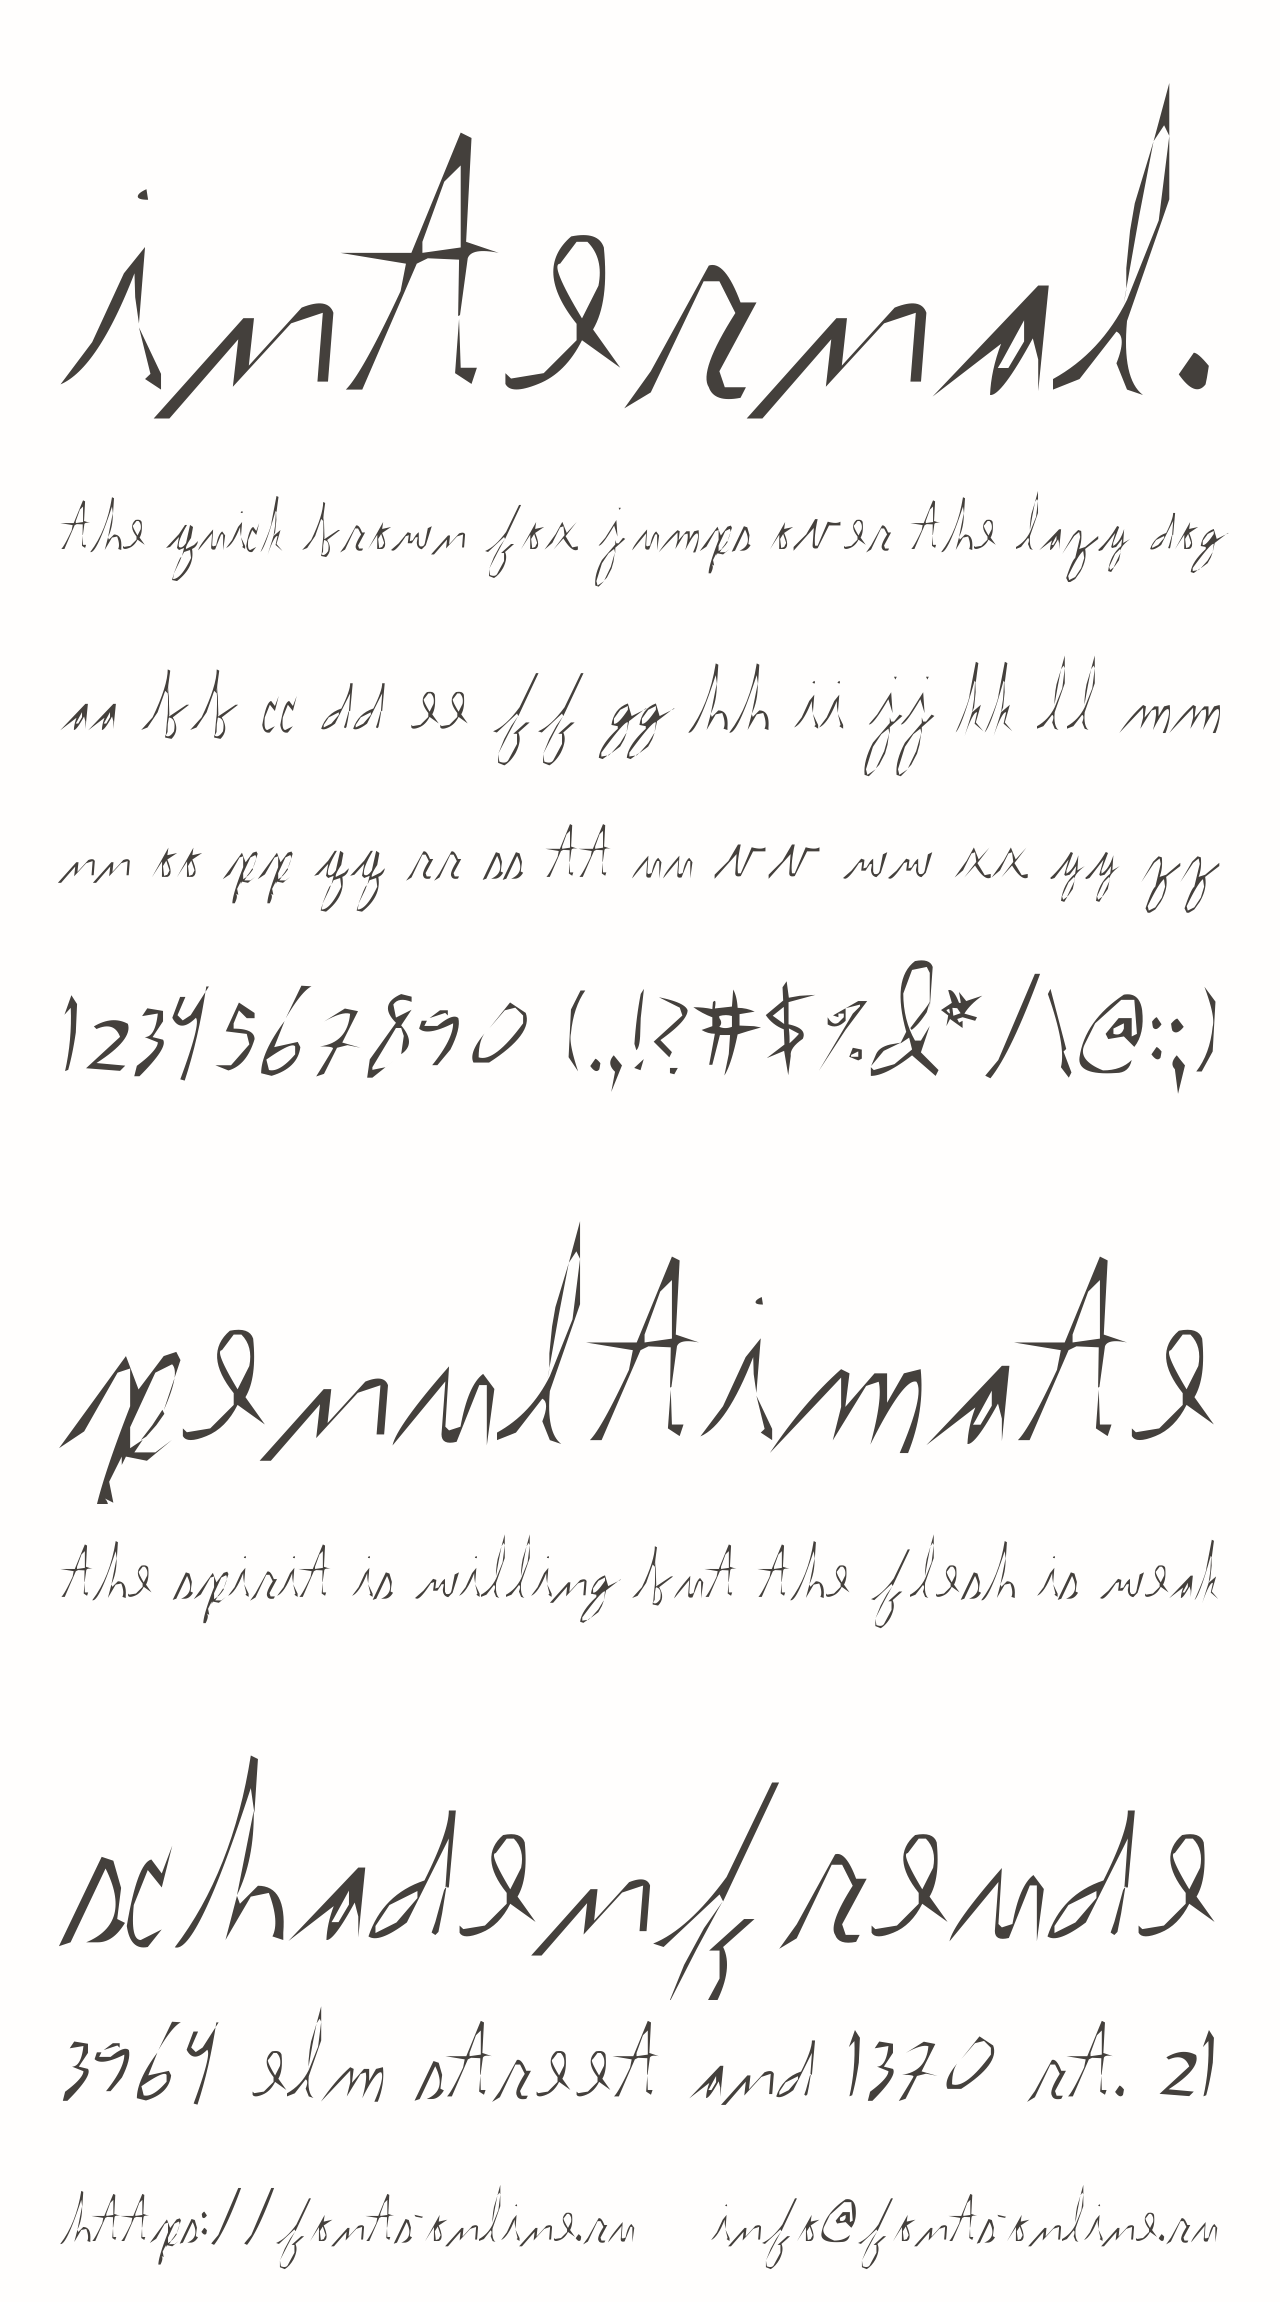 internal.
the quick brown fox jumps over the lazy dog
aa bb cc dd ee ff gg hh ii jj kk ll mm
nn oo pp qq rr ss tt uu vv ww xx yy zz
1234567890 (.,!?#$%&*/\@:;)
penultimate
the spirit is willing but the flesh is weak
schadenfreude
3964 elm street and 1370 rt. 21
https://fonts-online.ru info@fonts-online.ru